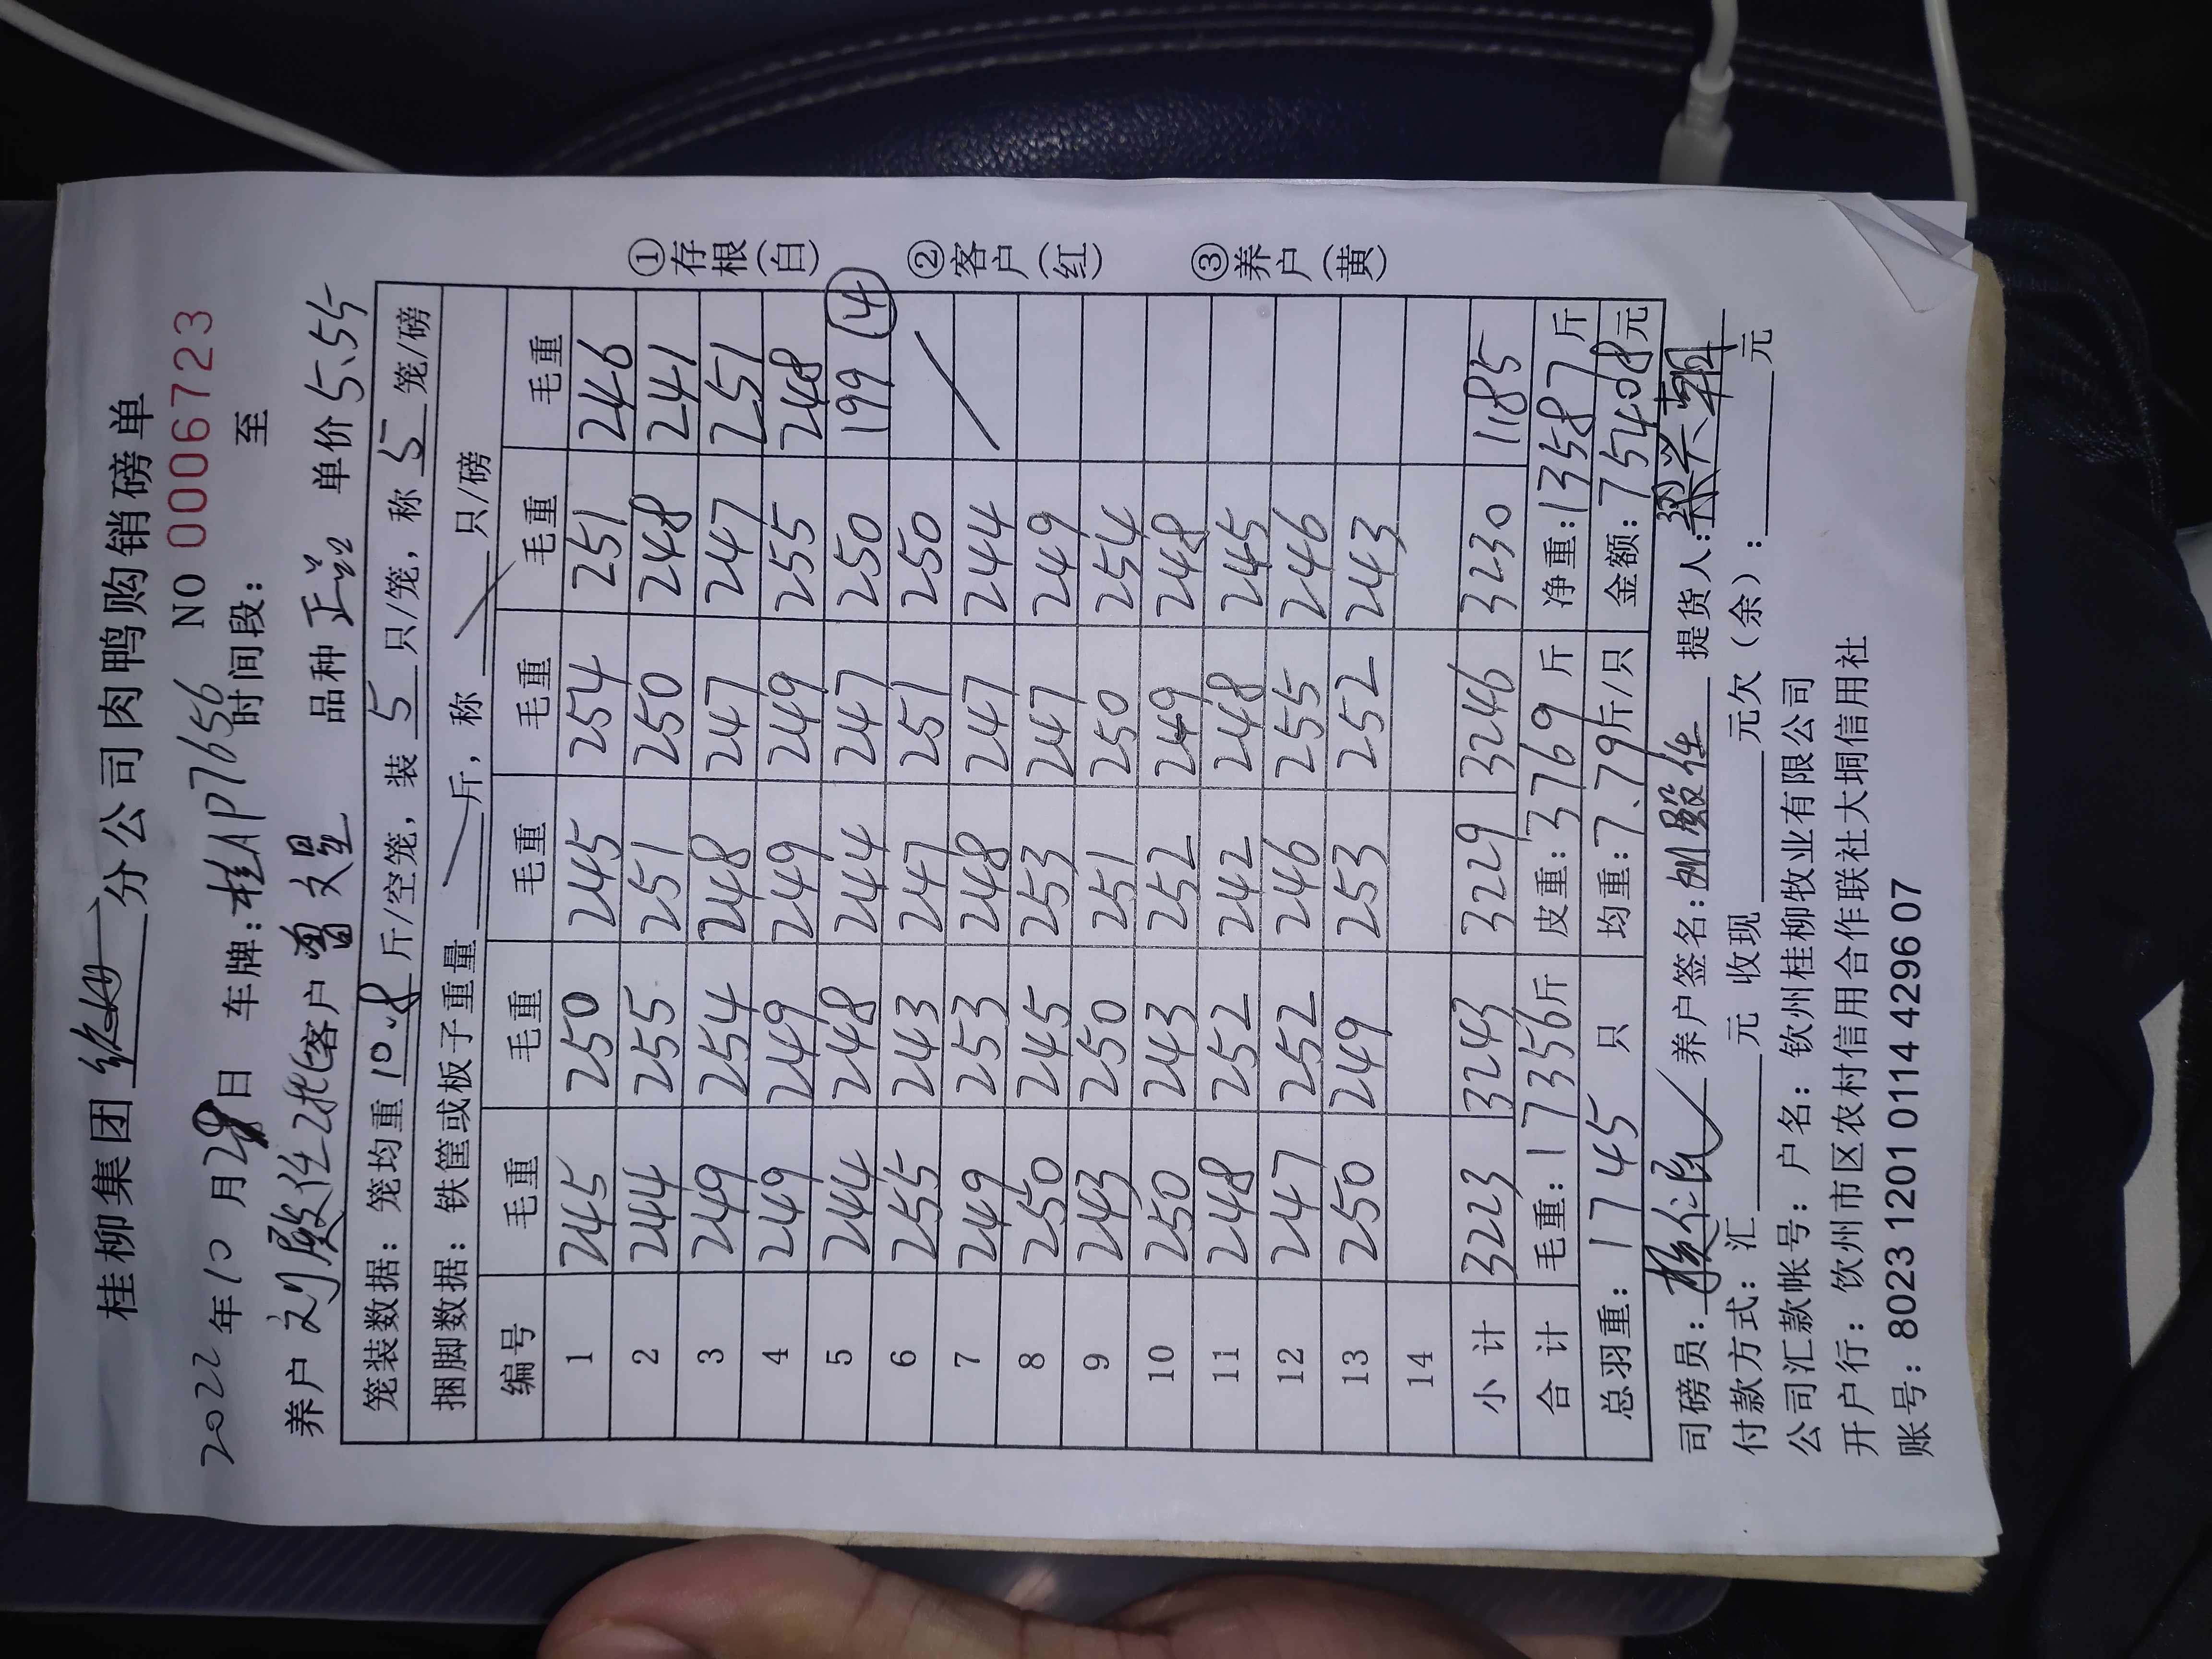 桂柳集团 分公司肉鸭购销磅单
2022年10月29日 车牌:桂AP7656 NO 0006723
时间段: 至
养户 刘殿任2批 客户 曾文星 品种 正品 单价 5.55
笼装数据: 笼均重 10.8 斤/空笼, 装 5 只/笼, 称 5 笼/磅
捆脚数据: 铁筐或板子重量 斤, 称 只/磅
编号 毛重 毛重 毛重 毛重 毛重 毛重
1 245 250 245 254 251 246
2 244 255 251 250 248 241
3 249 254 248 247 247 251
4 249 249 249 249 255 248
5 244 248 244 247 250 199 ④
6 255 243 247 251 250
7 249 253 248 247 244
8 250 245 253 247 249
9 243 250 251 250 254
10 250 243 252 249 248
11 248 252 242 248 245
12 247 252 246 255 246
13 250 249 253 252 243
14
小计 3223 3243 3229 3246 3230 1185
合计 毛重:17356斤 皮重:3769 斤 净重:13587斤
总羽重: 1745 只 均重:7.79斤/只 金额:75408元
司磅员: 养户签名:刘殿任 提货人:梁兴朝
付款方式: 汇 元 收现 元欠(余): 元
公司汇款帐号: 户名: 钦州桂柳牧业有限公司
开户行: 钦州市区农村信用合作联社大垌信用社
账号: 8023 1201 0114 4296 07
①存根(白) ②客户(红) ③养户(黄)